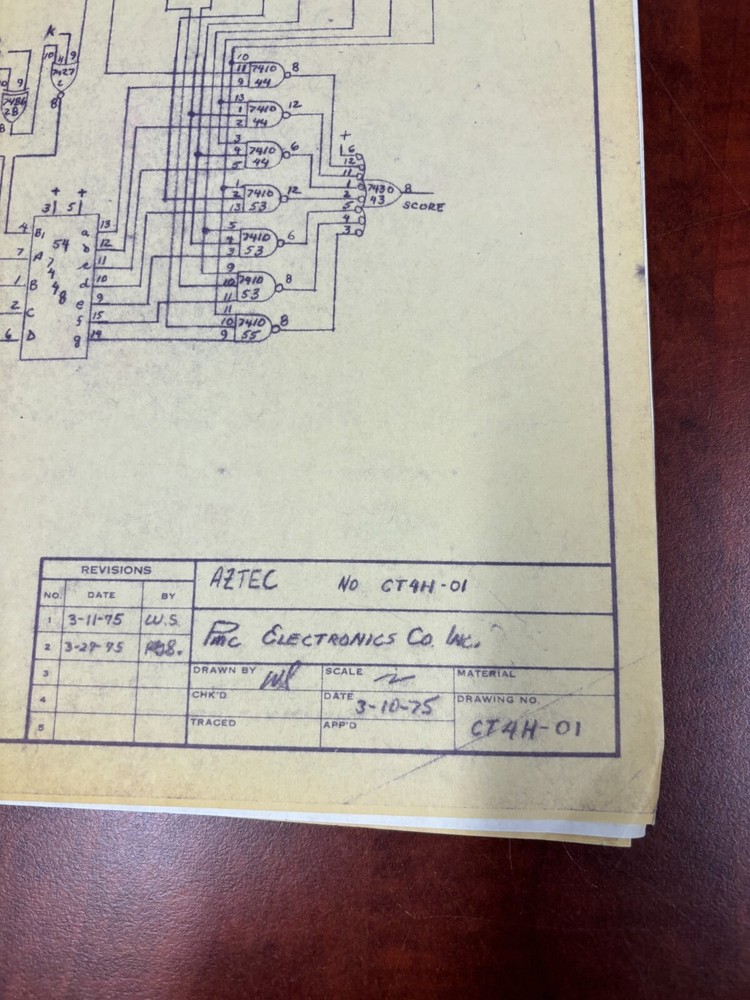 K
10 11 9
7427
2
8
10 9
7486
2B
8
10
11 7410 8
9 44
13
1 7410 12
2 44
3
4 7410 6
5 44
1
2 7410 12
13 53
5
4 7410 6
3 53
9
10 7410 8
11 53
11
10 7410 8
9 55
+
6
12
11
1 7430 8
2 43
5
4
3
SCORE
+ +
3 5
4 B1 54 a 13
7 A 7 b 12
4 c 11
1 B 4 d 10
8 e 9
2 C f 15
6 D g 14
REVISIONS
NO. DATE BY
1 3-11-75 W.S.
2 3-27-75
3
4
5
AZTEC NO CT4H-01
PMC ELECTRONICS CO. INC.
DRAWN BY SCALE MATERIAL
CHK'D DATE 3-10-75 DRAWING NO.
TRACED APP'D CT4H-01